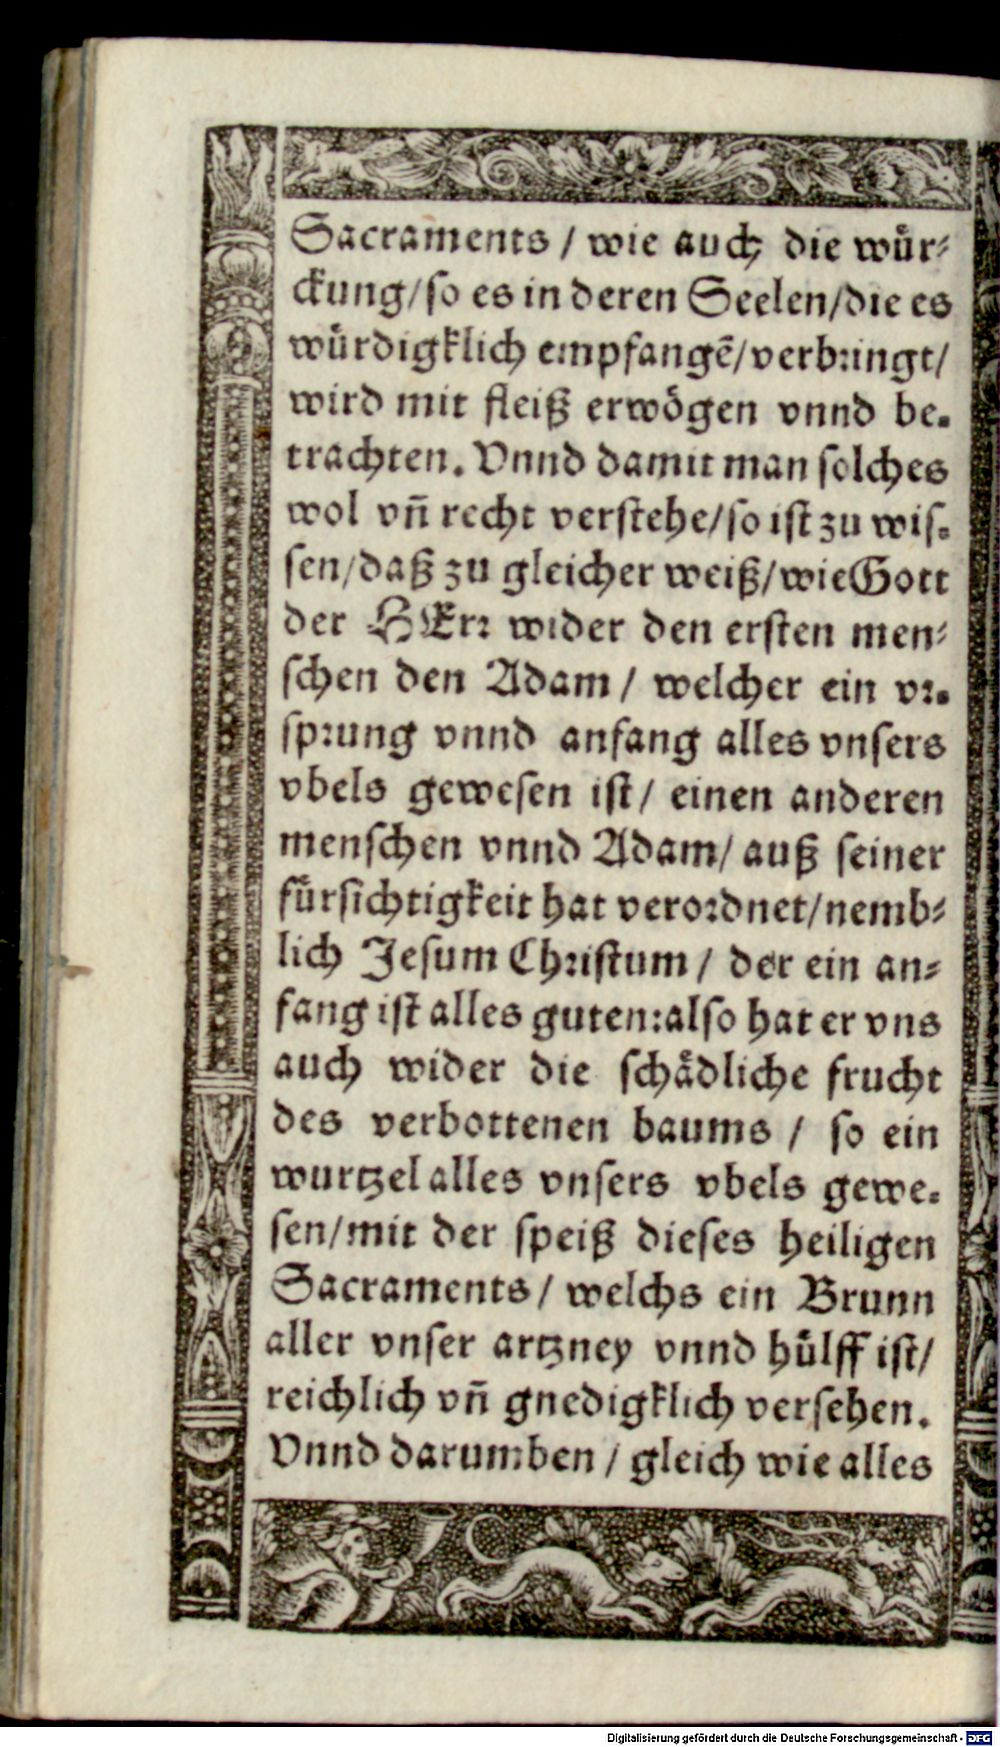 Sacraments / wie auch die wuͤr⸗
ckung/so es in deren Seelen/die es
wuͤrdigklich empfangē/verbringt/
wird mit fleiß erwoͤgen vnnd be⸗
trachten. Vnnd damit man solches
wol vn̄ recht verstehe/so ist zu wis⸗
sen/daß zu gleicher weiß/wie Gott
der HErr wider den ersten men⸗
schen den Adam / welcher ein vr⸗
sprung vnnd anfang alles vnsers
vbels gewesen ist/ einen anderen
menschen vnnd Adam/ auß seiner
fuͤrsichtigkeit hat verordnet/nemb⸗
lich Jesum Christum / der ein an⸗
fang ist alles guten:also hat er vns
auch wider die schaͤdliche frucht
des verbottenen baums / so ein
wurtzel alles vnsers vbels gewe⸗
sen/mit der speiß dieses heiligen
Sacraments/ welchs ein Brunn
aller vnser artzney vnnd huͤlff ist/
reichlich vn̄ gnedigklich versehen.
Vnnd darumben / gleich wie alles
Digitalisierung gefördert durch die Deutsche Forschungsgemeinschaft - DFG